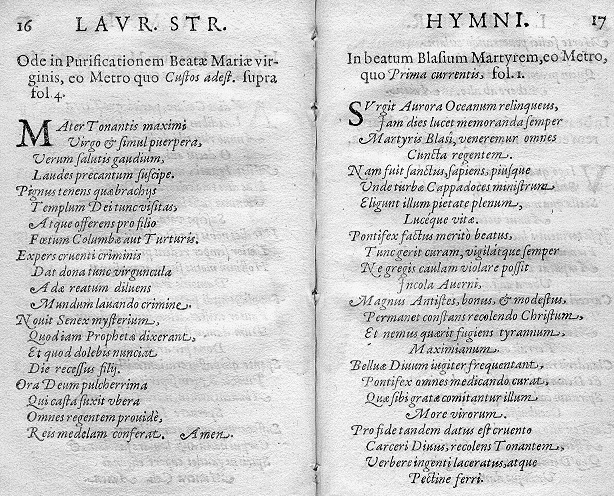 16 LAVR. STR.
Ode in Purificationem Beatæ Mariæ vir-
ginis, eo Metro quo Custos adest. supra
fol. 4.
MAter Tonantis maximi
Virgo & simul puerpera,
Verum salutis gaudium,
Laudes precantum suscipe.
Pignus tenens quæ brachijs
Templum Dei tunc visitas,
Atque offerens pro filio
Fœtum Columbæ aut Turturis.
Expers cruenti criminis
Dat dona tunc virguncula
Adæ reatum diluens
Mundum lauando crimine.
Nouit Senex mysterium,
Quod iam Prophetæ dixerant,
Et quod dolebis nunciat
Die recessus filij.
Ora Deum pulcherrima
Qui casta suxit vbera
Omnes regentem prouidè,
Reis medelam conferat. Amen.
HYMNI. 17
In beatum Blasium Martyrem, eo Metro,
quo Prima currentis. fol. 1.
SVrgit Aurora Oceanum relinqueus,
Iam dies lucet memoranda semper
Martyris Blasi, veneremur omnes
Cuncta regentem.
Nam fuit sanctus, sapiens, piusque
Unde turbæ Cappadoces ministrum
Eligunt illum pietate plenum,
Luceque vitæ.
Pontifex factus meritò beatus,
Tunc gerit curam, vigilatque semper
Ne gregis caulam violare possit
Incola Auerni,
Magnus Antistes, bonus, & modestus,
Permanet constans recolendo Christum,
Et nemus quærit fugiens tyrannum,
Maximianum.
Belluæ Diuum iugiter frequentant,
Pontifex omnes medicando curat,
Quæ sibi gratæ comitantur illum
More virorum.
Pro fide tandem datus est cruento
Carceri Diuus, recolens Tonantem,
Verbere ingenti laceratus, atque
Pectine ferri.